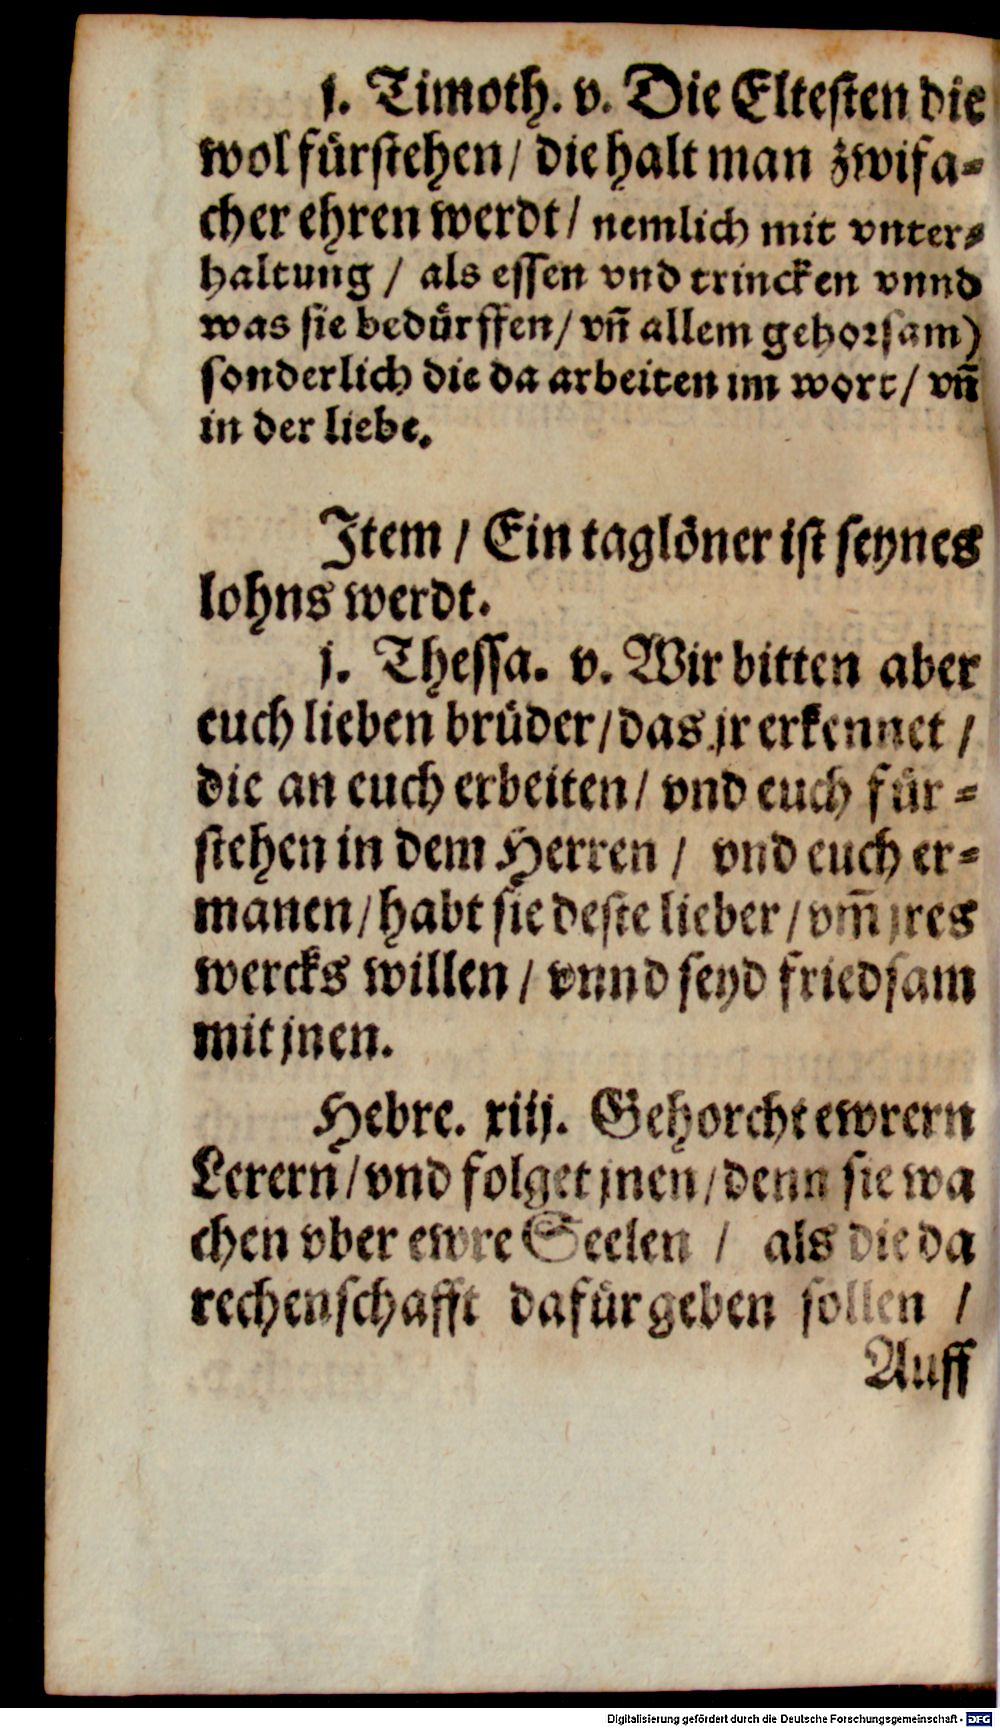 j. Timoth. v. Die Eltesten die
wol fürstehen / die halt man zwifa=
cher ehren werdt / nemlich mit vnter=
haltung / als essen vnd trincken vnnd
was sie bedürffen / vn̄ allem gehorsam)
sonderlich die da arbeiten im wort / vn̄
in der liebe.
Item / Ein taglöner ist seynes
lohns werdt.
j. Thessa. v. Wir bitten aber
euch lieben brüder / das jr erkennet /
die an euch erbeiten / vnd euch für=
stehen in dem Herren / vnd euch er=
manen / habt sie deste lieber / vm̄ jres
wercks willen / vnnd seyd friedsam
mit jnen.
Hebre. xiij. Gehorcht ewrern
Lerern / vnd folget jnen / denn sie wa
chen vber ewre Seelen / als die da
rechenschafft dafür geben sollen /
Auff
Digitalisierung gefördert durch die Deutsche Forschungsgemeinschaft - DFG